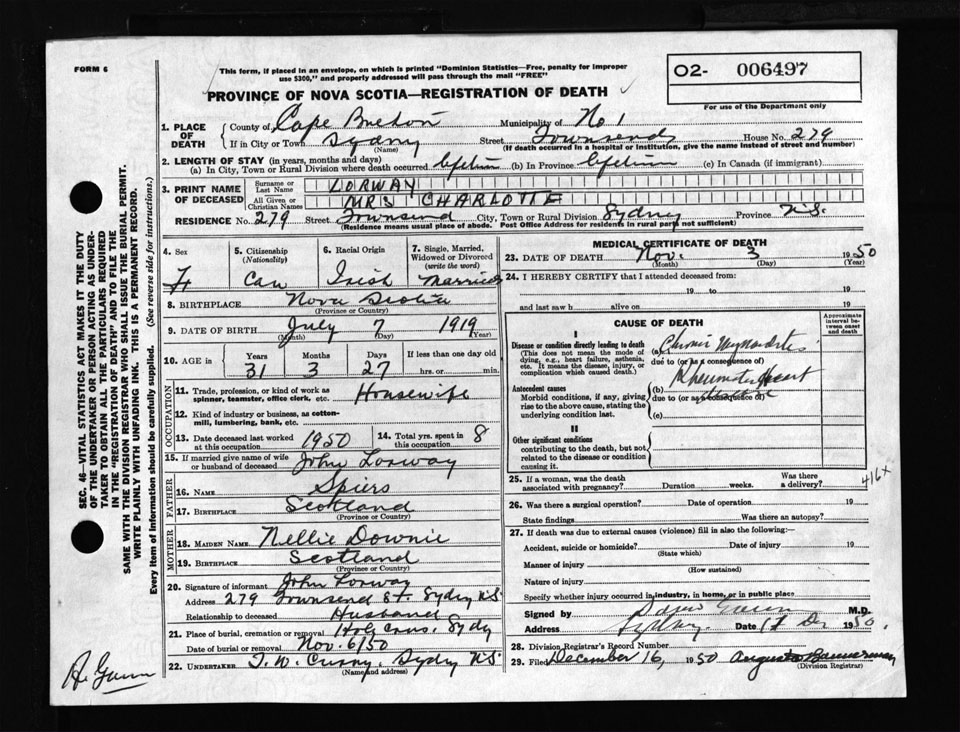 FORM 6
This form, if placed in an envelope, on which is printed "Dominion Statistics—Free, penalty for improper
use $300", and properly addressed will pass through the mail "FREE"
O2- 006497
For use of the Department only
PROVINCE OF NOVA SCOTIA—REGISTRATION OF DEATH
1. PLACE OF DEATH
County of Cape Breton Municipality of No 1
If in City or Town Sydney Street Townsend House No. 279
(Name) (If death occurred in a hospital or institution, give the name instead of street and number)
2. LENGTH OF STAY (in years, months and days)
(a) In City, Town or Rural Division where death occurred lifetime (b) In Province lifetime (c) In Canada (if immigrant)
3. PRINT NAME OF DECEASED
Surname or Last Name LORWAY
All Given or Christian Names MRS CHARLOTTE
RESIDENCE No. 279 Street Townsend City, Town or Rural Division Sydney Province N.S.
(Residence means usual place of abode. Post Office Address for residents in rural parts not sufficient)
4. Sex F
5. Citizenship (Nationality) Can
6. Racial Origin Irish
7. Single, Married, Widowed or Divorced (write the word) Married
8. BIRTHPLACE Nova Scotia
(Province or Country)
9. DATE OF BIRTH July 7 1919
(Month) (Day) (Year)
10. AGE in Years Months Days If less than one day old
31 3 27 hrs. or min.
OCCUPATION
11. Trade, profession, or kind of work as spinner, teamster, office clerk, etc. Housewife
12. Kind of industry or business, as cotton-mill, lumbering, bank, etc.
13. Date deceased last worked at this occupation 1950
14. Total yrs. spent in this occupation 8
15. If married give name of wife or husband of deceased John Lorway
FATHER
16. NAME Spiers
17. BIRTHPLACE Scotland
(Province or Country)
MOTHER
18. MAIDEN NAME Nellie Downie
19. BIRTHPLACE Scotland
(Province or Country)
20. Signature of informant John Lorway
Address 279 Townsend St. Sydney N.S.
Relationship to deceased Husband
21. Place of burial, cremation or removal Holy Cross. Sydy
Date of burial or removal Nov. 6/50
22. UNDERTAKER T. W. Curry, Sydney N.S.
(Name and address)
MEDICAL CERTIFICATE OF DEATH
23. DATE OF DEATH Nov. 3 1950
(Month) (Day) (Year)
24. I HEREBY CERTIFY that I attended deceased from:
19 to 19
and last saw h alive on 19
CAUSE OF DEATH
Approximate interval between onset and death
I
Disease or condition directly leading to death
(This does not mean the mode of dying, e.g., heart failure, asthenia, etc. It means the disease, injury, or complication which caused death.)
(a) Chronic Myocarditis
due to (or as a consequence of)
Antecedent causes
Morbid conditions, if any, giving rise to the above cause, stating the underlying condition last.
(b) Rheumatic Heart
due to (or as a consequence of)
(c)
II
Other significant conditions
contributing to the death, but not related to the disease or condition causing it.
25. If a woman, was the death associated with pregnancy? Duration weeks. Was there a delivery?
416x
26. Was there a surgical operation? Date of operation 19
State findings Was there an autopsy?
27. If death was due to external causes (violence) fill in also the following:
Accident, suicide or homicide? Date of injury 19
(State which)
Manner of injury
(How sustained)
Nature of injury
Specify whether injury occurred in industry, in home, or in public place
Signed by M.D.
Address Sydney. Date 1st Dec 1950.
28. Division Registrar's Record Number
29. Filed December 16, 1950 Augusta Bannerman
(Division Registrar)
SEC. 46—VITAL STATISTICS ACT MAKES IT THE DUTY
OF THE UNDERTAKER OR PERSON ACTING AS UNDER-
TAKER TO OBTAIN ALL THE PARTICULARS REQUIRED
IN THE "REGISTRATION OF DEATH" AND TO FILE THE
SAME WITH THE DIVISION REGISTRAR WHO SHALL ISSUE THE BURIAL PERMIT.
WRITE PLAINLY WITH UNFADING INK. THIS IS A PERMANENT RECORD.
Every item of information should be carefully supplied. (See reverse side for instructions.)